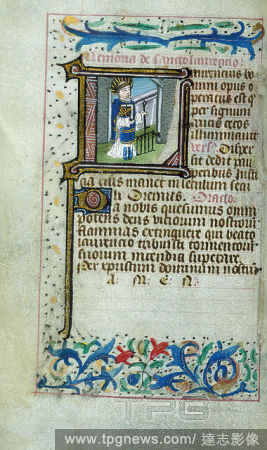 Memoria de sancto laurencio
Laurencius bo
num opus o
peratus est q
per signum
crucis cecos
illuminavit
Disper
sit dedit pau
peribus Justi
cia eius manet in seculum secu
li Oremus. Oracio.
Da nobis quesumus omni
potens deus viciorum nostrorum
flammas extinguere qui beato
laurencio tribuisti tormentorum
suorum incendia superare.
Per cristum dominum nostrum
A M E N
TPG
www.tpgnews.com / 達志影像